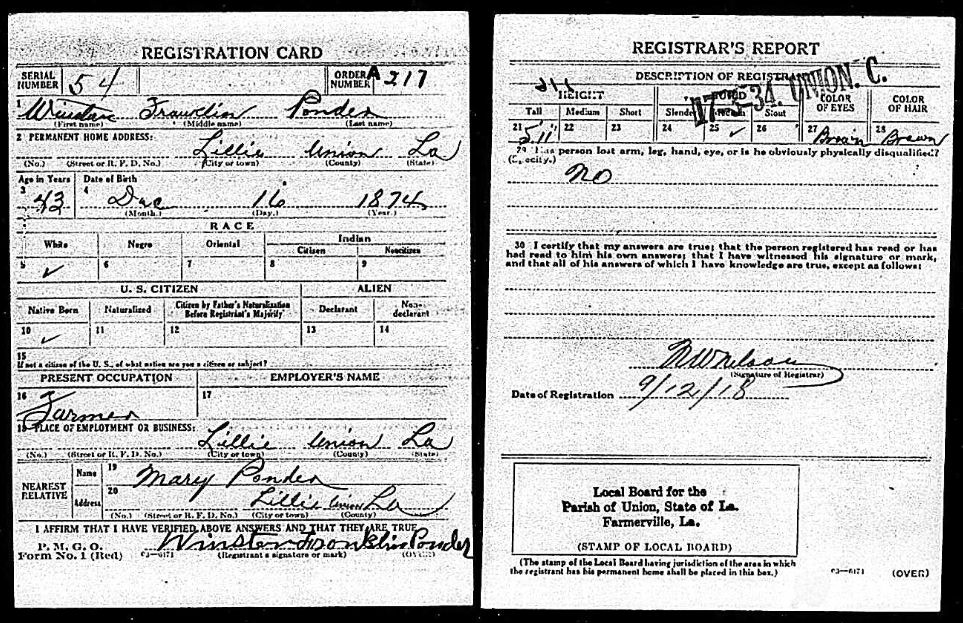 REGISTRATION CARD
SERIAL NUMBER 54 ORDER NUMBER A 217
1 Winston Franklin Ponder
(First name) (Middle name) (Last name)
2 PERMANENT HOME ADDRESS:
Lillie Union La
(No.) (Street or R. F. D. No.) (City or town) (County) (State)
Age in Years Date of Birth
3 43 4 Dec 16 1874
(Month.) (Day.) (Year.)
RACE
White Negro Oriental Indian
Citizen Noncitizen
5 ✓ 6 7 8 9
U. S. CITIZEN ALIEN
Native Born Naturalized Citizen by Father's Naturalization Before Registrant's Majority Declarant Non-declarant
10 ✓ 11 12 13 14
15
If not a citizen of the U. S., of what nation are you a citizen or subject?
PRESENT OCCUPATION EMPLOYER'S NAME
16 Farmer 17
18 PLACE OF EMPLOYMENT OR BUSINESS:
Lillie Union La
(No.) (Street or R. F. D. No.) (City or town) (County) (State)
NEAREST RELATIVE
Name 19 Mary Ponder
Address 20 Lillie Union La
(No.) (Street or R. F. D. No.) (City or town) (County)
I AFFIRM THAT I HAVE VERIFIED ABOVE ANSWERS AND THAT THEY ARE TRUE
P. M. G. O.
Form No. 1 (Red) 03—6171 Winston Franklin Ponder
(Registrant's signature or mark) (OVER)
REGISTRAR'S REPORT
17-3-34. UNION. C.
DESCRIPTION OF REGISTRANT
HEIGHT COLOR OF EYES COLOR OF HAIR
Tall Medium Short Slender Medium Stout
21 5.11 22 23 24 25 ✓ 26 27 Brown 28 Brown
29 Has person lost arm, leg, hand, eye, or is he obviously physically disqualified?
No
30 I certify that my answers are true; that the person registered has read or has
had read to him his own answers; that I have witnessed his signature or mark,
and that all of his answers of which I have knowledge are true, except as follows:
(Signature of Registrar)
Date of Registration 9/12/18
Local Board for the
Parish of Union, State of La.
Farmerville, La.
(STAMP OF LOCAL BOARD)
(The stamp of the Local Board having jurisdiction of the area in which
the registrant has his permanent home shall be placed in this box.)
03—6171 (OVER)